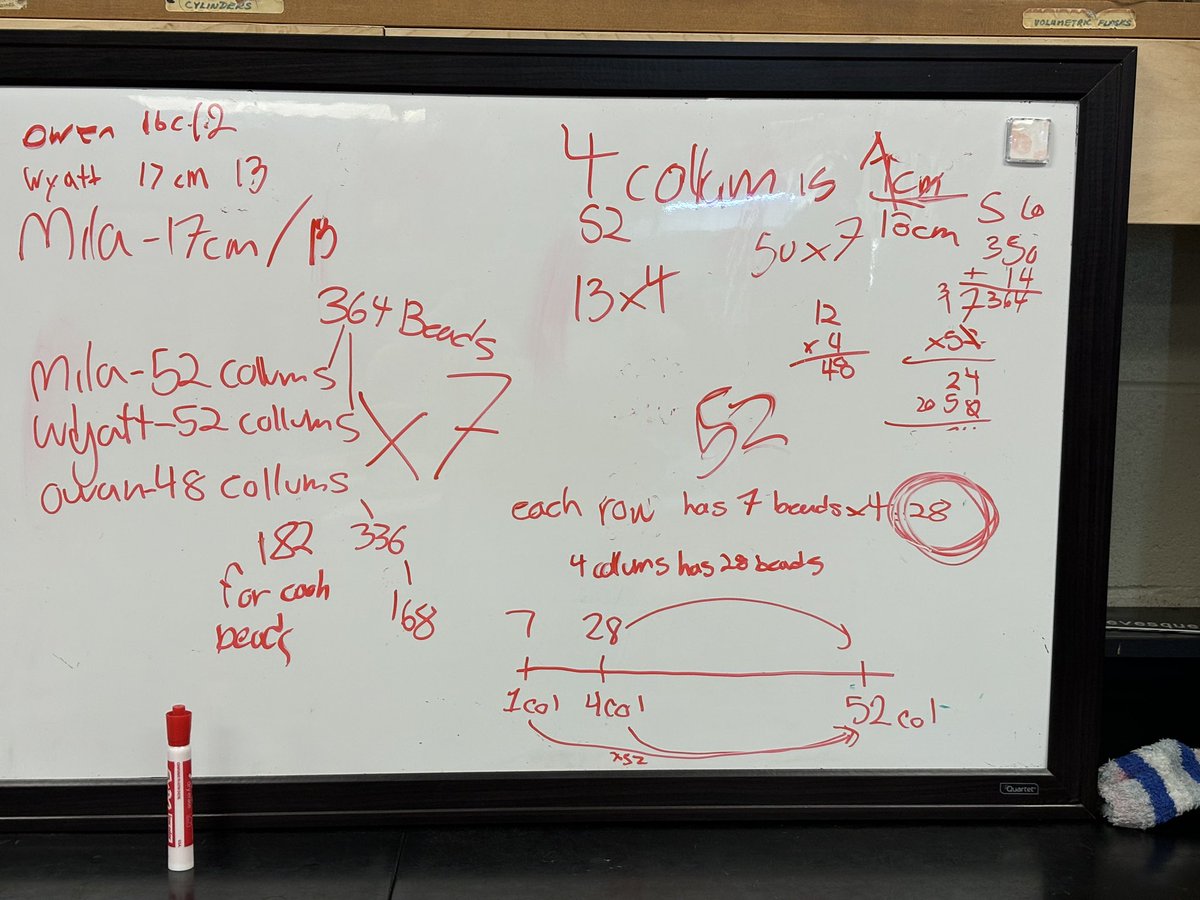 CYLINDERS
VOLUMETRIC FLASKS
owen 16c/12
Wyatt 17cm 13
Mila-17cm/13
364 Beads
Mila-52 collums
Wyatt-52 collums
owan-48 collums
x7
182
for each
beads
336
168
4 collum is 4cm
52
13x4
50x7
18cm
350
+ 14
364
12
x 4
48
7
24
52
each row has 7 beads x4 28
4 collums has 28 beads
7 28
1col 4col 52 col
x52
Quartet